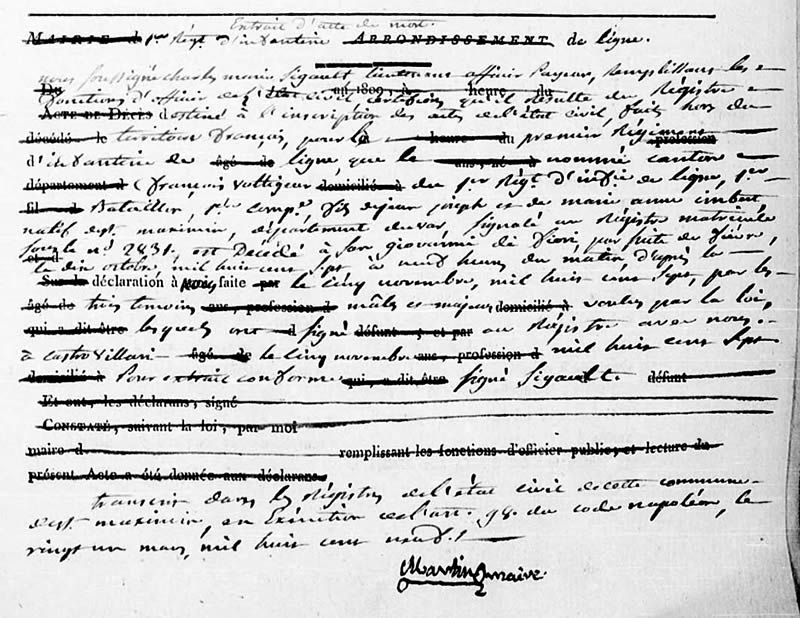 Extrait d'acte de mort.
MAIRIE d 1er Régt d'infanterie ARRONDISSEMENT de ligne.
nous soussigné charles marie Sigault lieutenant officier Payeur, remplissant les
Du an 1809, à heure du
fonctions d'officier de l'état civil certifions qu'il résulte du Régistre
ACTE DE DÉCÈS destiné à l'inscription des actes de l'état civil, faits hors du
décédé le territoire français, pour le heure du premier Régiment profession
d'infanterie de âgé de ligne, que le ans, né à nommé canton
département d (françois voltigeur domicilié à du 1er Régt d'infie de ligne, 1er
fil d Bataillon, 1ere compe, fils de jean joseph et de marie anne imbert
natif de st maximin, département du var, signalé au Régistre matricule
sous le no 2831, est Décédé à San giovanni di fiori, par suite de fièvre,
et d
le dix octobre, mil huit cent sept à neuf heures du matin d'après la
Sur la déclaration à nous faite par le cinq novembre, mil huit cent sept, par les
âgé de trois témoins ans, profession d mâles et majeurs domicilié à voulus par la loi,
qui a dit être lesquels ont d signé défunt ; et par au Régistre avec nous.
à castrovillari âgé de le cinq novembre ans, profession d mil huit cent sept
domicilié à Pour extrait conforme qui, a dit être signé Sigault. défunt
Et ont, les déclarans, signé
CONSTATÉ, suivant la loi, par moi
maire d remplissant les fonctions d'officier public, et lecture du
présent Acte a été donnée aux déclarans.
transcrit dans les Régistres de l'état civil de cette commune
de st maximin, en Exécution de l'art. 98. du code napoléon, le
vingt un mars, mil huit cent neuf.
Martin maire.